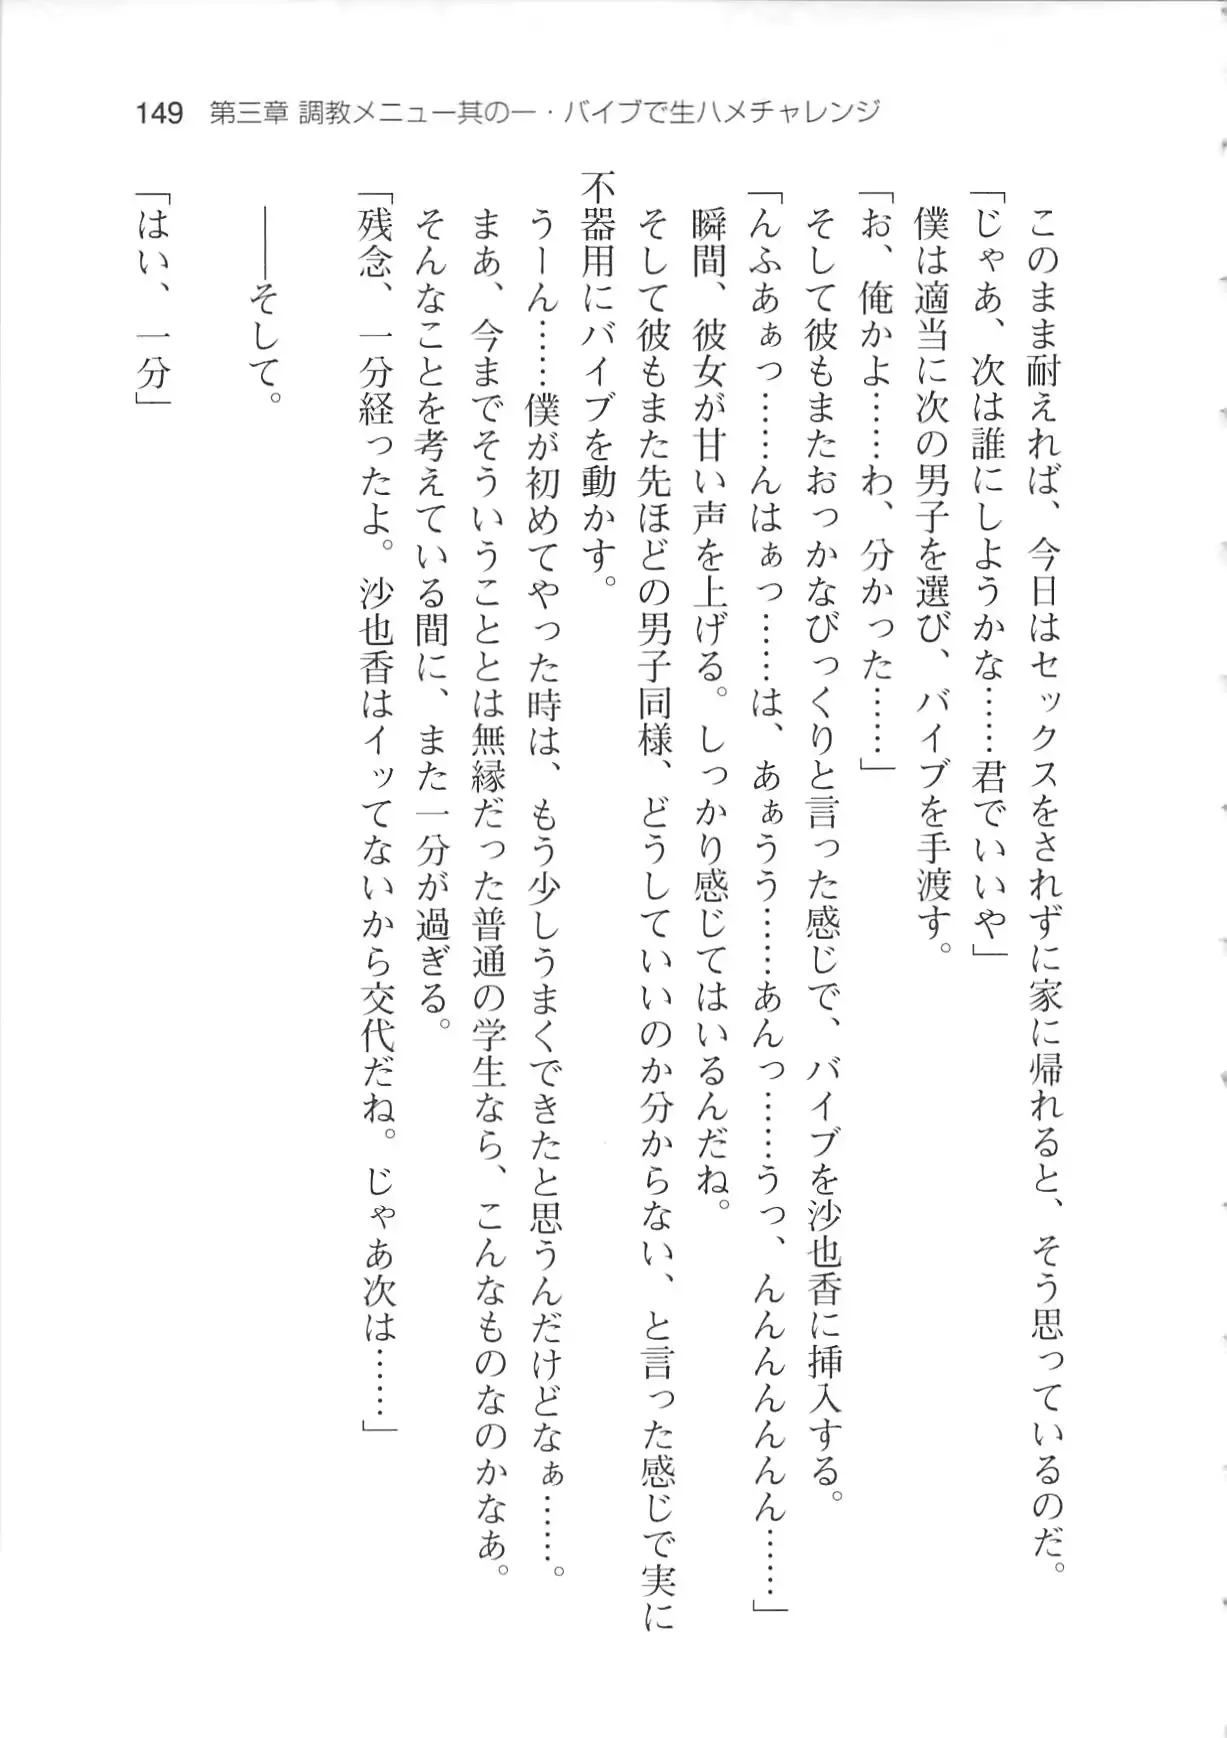 149 第三章 調教メニュー其の一・バイブで生ハメチャレンジ
このまま耐えれば、今日はセックスをされずに家に帰れると、そう思っているのだ。
「じゃあ、次は誰にしようかな……君でいいや」
僕は適当に次の男子を選び、バイブを手渡す。
「お、俺かよ……わ、分かった……」
そして彼もまたおっかなびっくりと言った感じで、バイブを沙也香に挿入する。
「んふあぁっ……んはぁっ……は、あぁうう……あんっ……うっ、んんんんんん……」
瞬間、彼女が甘い声を上げる。しっかり感じてはいるんだね。
そして彼もまた先ほどの男子同様、どうしていいのか分からない、と言った感じで実に
不器用にバイブを動かす。
うーん……僕が初めてやった時は、もう少しうまくできたと思うんだけどなぁ……。
まあ、今までそういうこととは無縁だった普通の学生なら、こんなものなのかなあ。
そんなことを考えている間に、また一分が過ぎる。
「残念、一分経ったよ。沙也香はイッてないから交代だね。じゃあ次は……」
――そして。
「はい、一分」